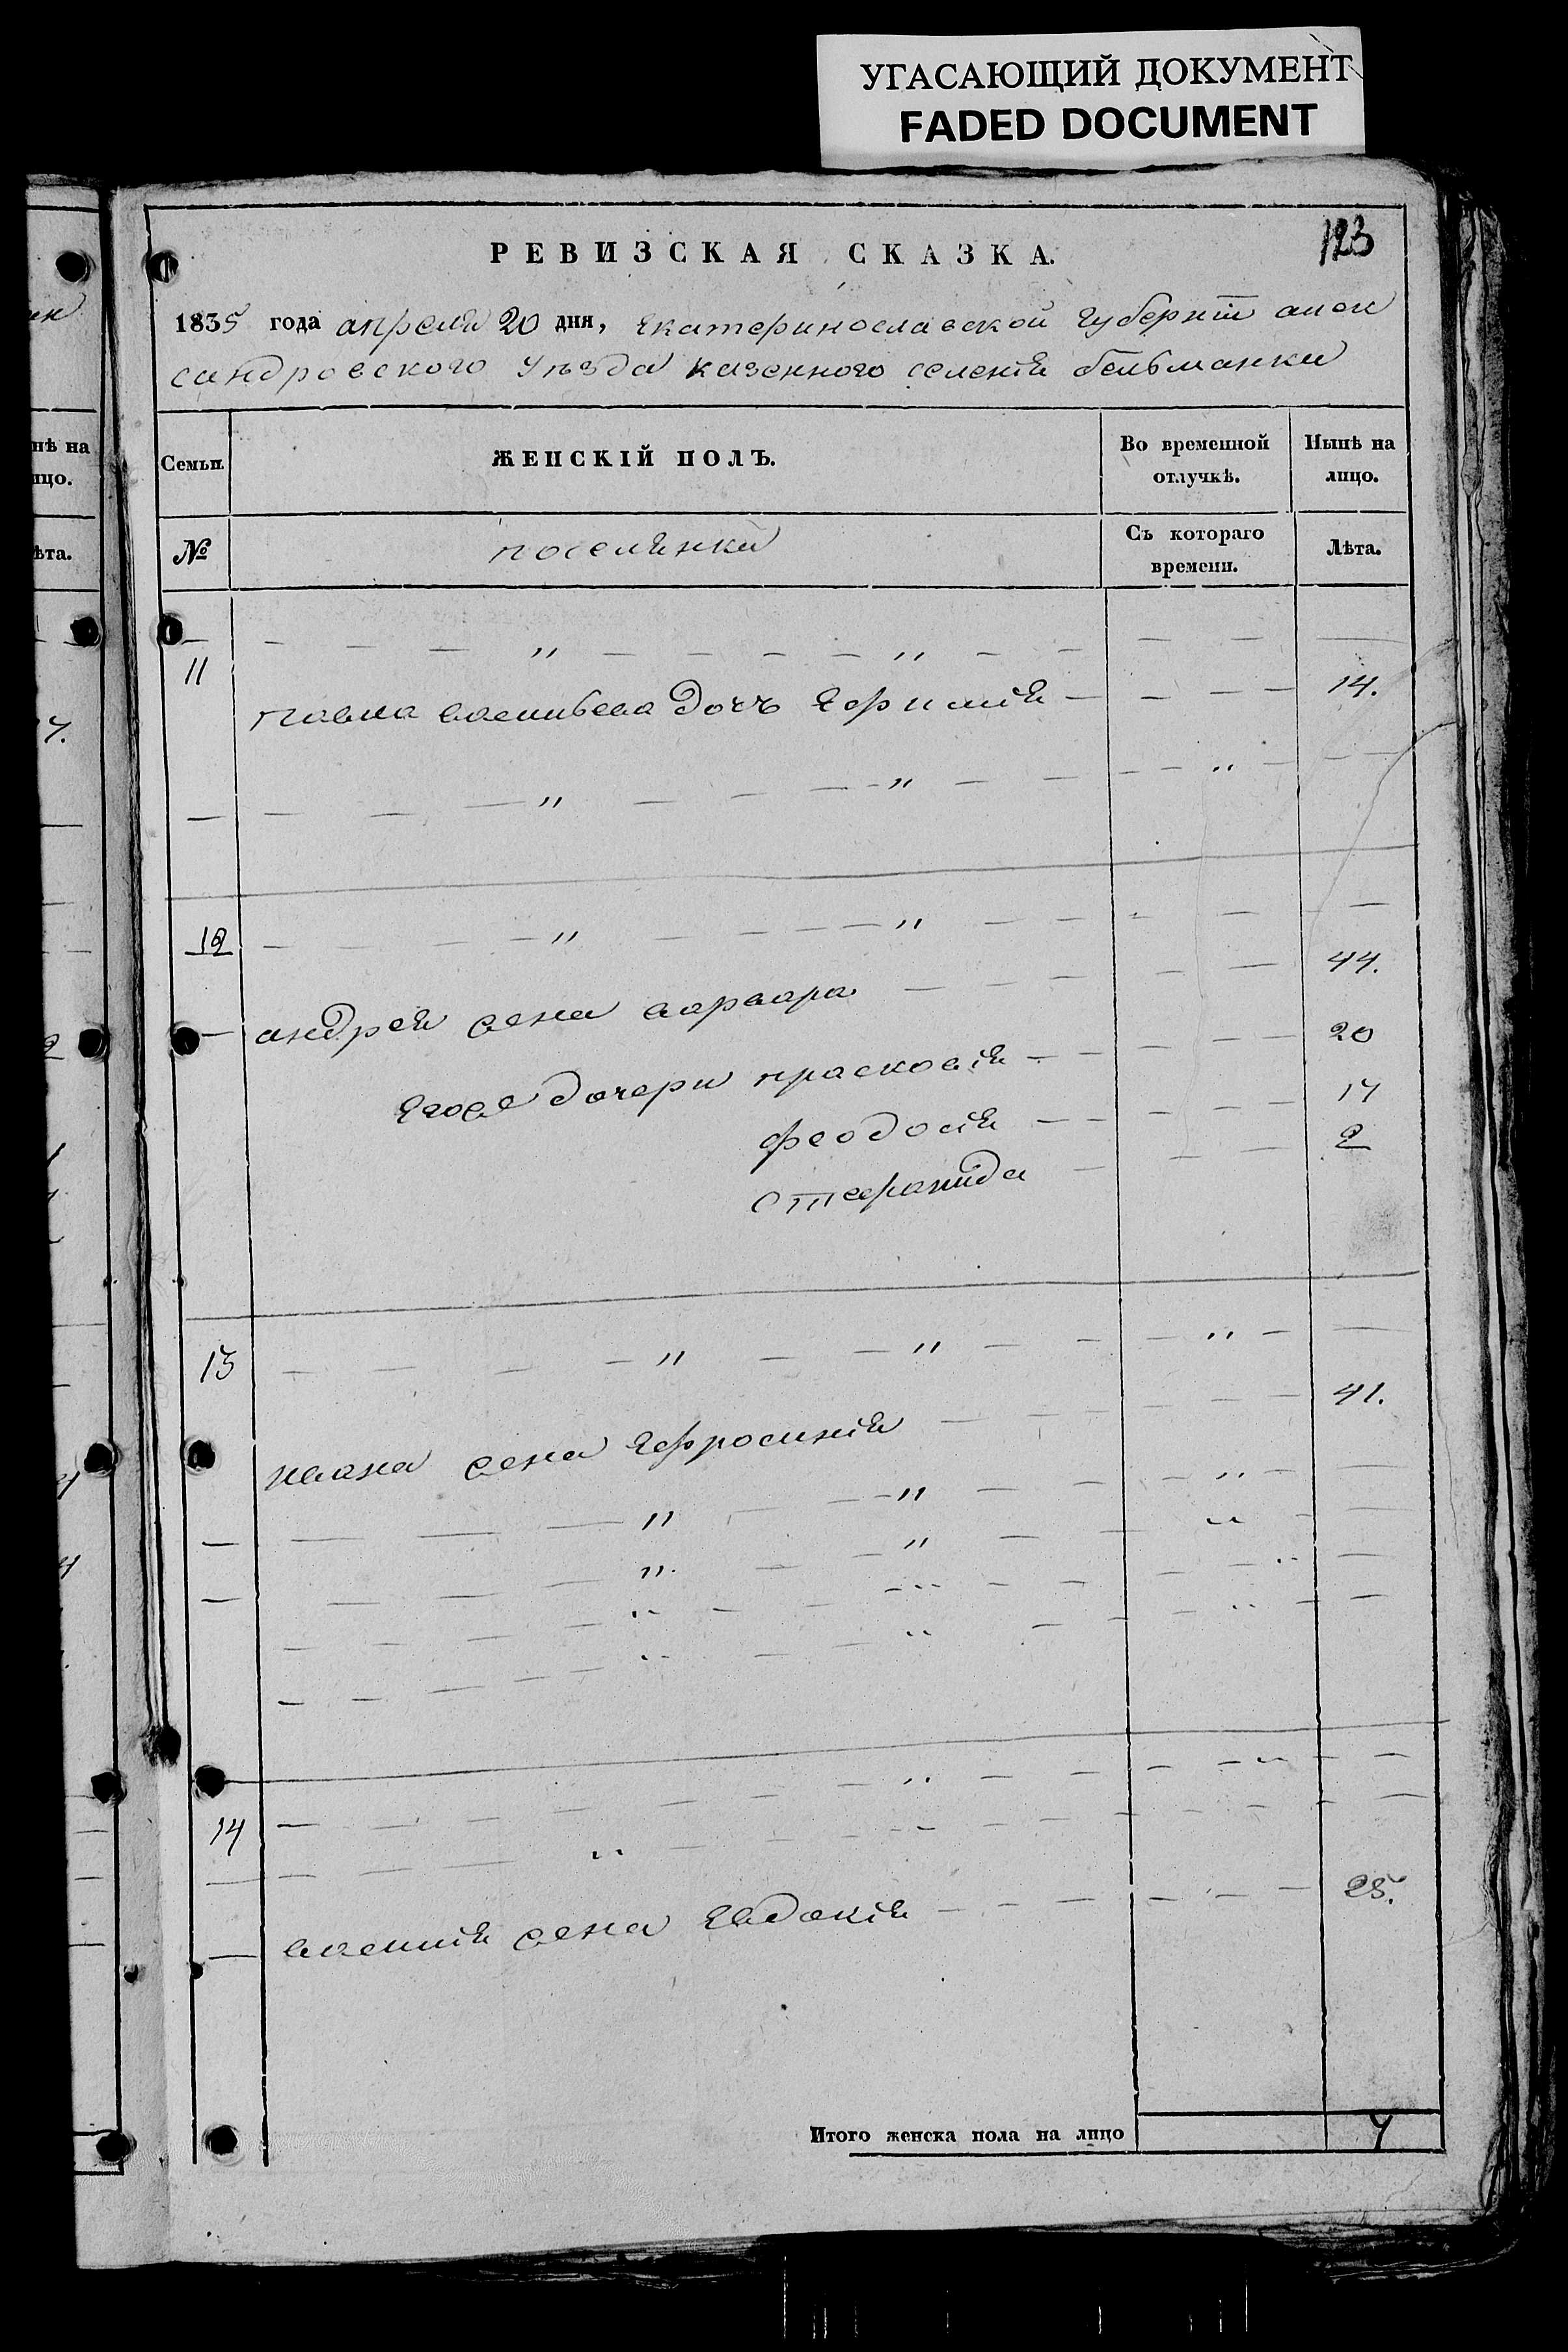 УГАСАЮЩИЙ ДОКУМЕНТ
FADED DOCUMENT
123
РЕВИЗСКАЯ СКАЗКА.
1835 года апреля 20 дня, Екатеринославской Губернiи алек
сандровского Уѣзда казенного селенiя белѣманки
Семьи.
ЖЕНСКІЙ ПОЛЪ.
Во временной отлучкѣ.
Нынѣ на лицо.
№
поселянки
Съ котораго времени.
Лѣта.
11
павла васильева дочъ Ефимiя 14.
12
андрея жена варвара 44.
Егоже дочери прасковiя 20
феодосiя 17
степанида 2
13
ивана жена Ефросинiя 41.
14
василiя жена Евдокiя 25.
Итого женска пола на лицо 7